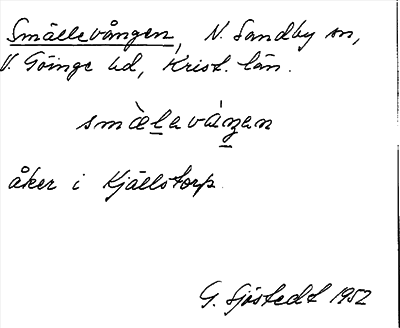 Smällevången, N. Sandby sn,
V. Göinge hd, Krist. län.
smὰlaváŋan
åker i Kjällstorp.
G. Sjöstedt 1952